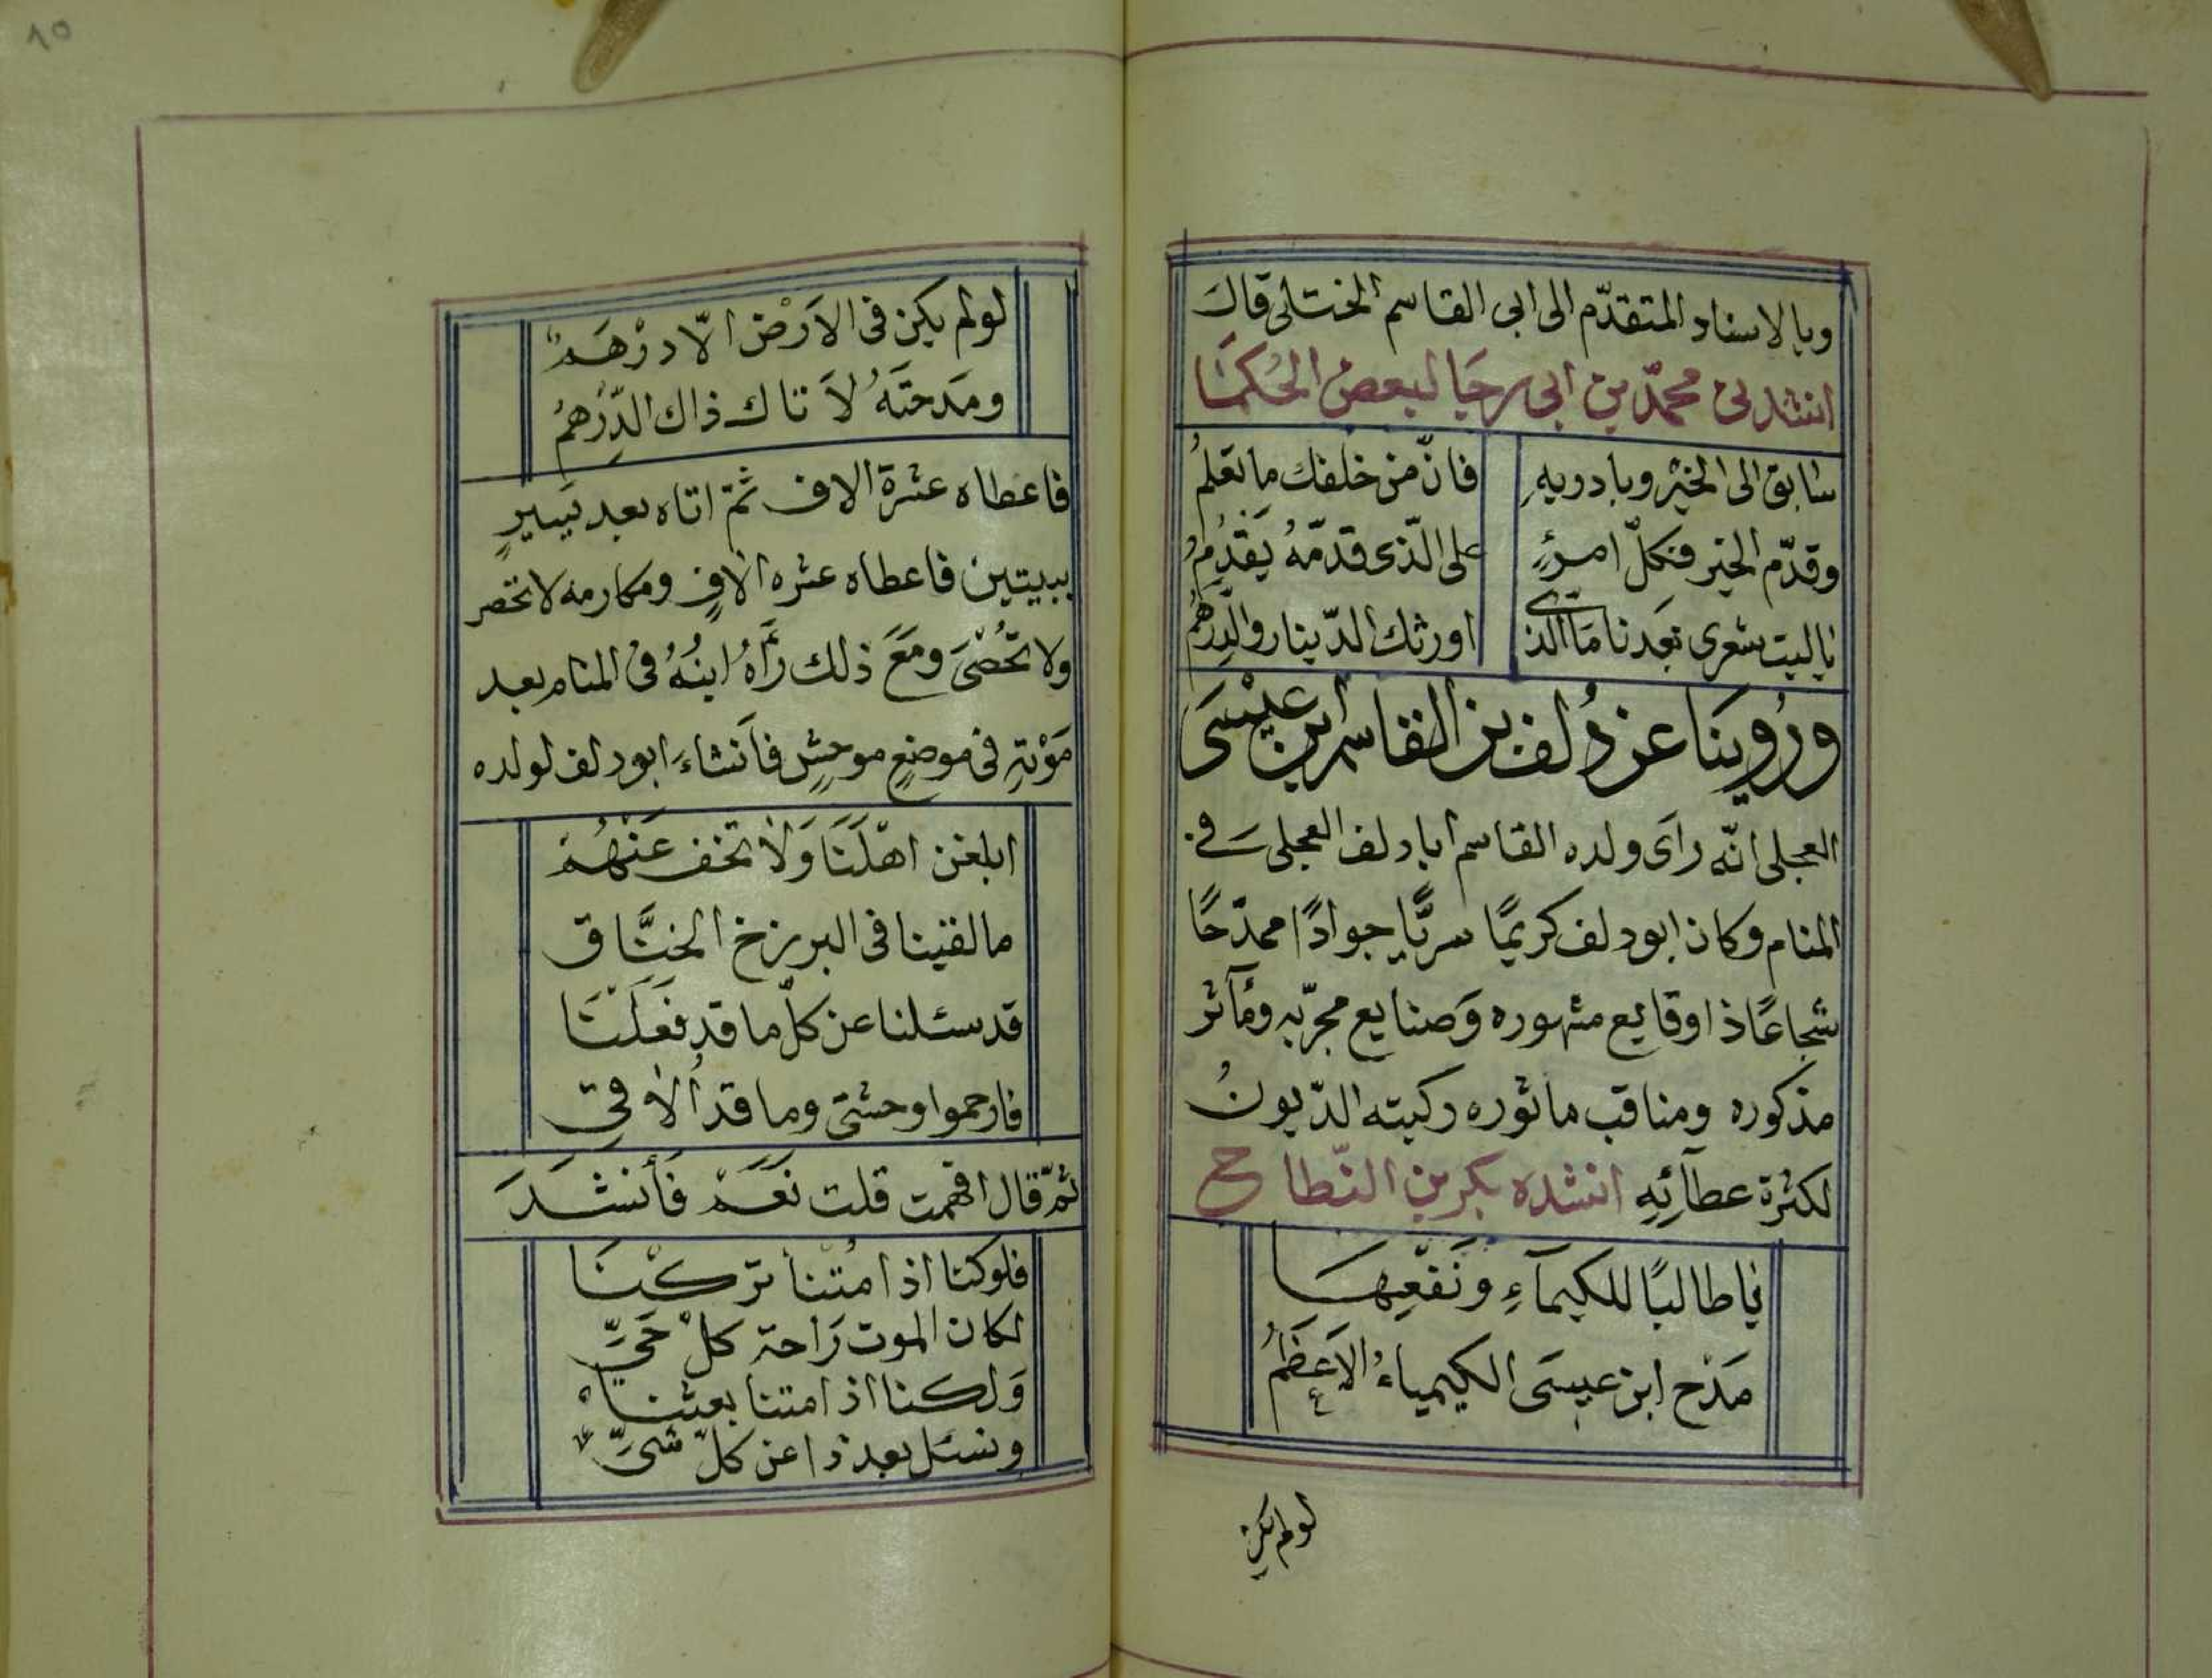 وبالاسناد المتقدّم الى ابى القاسم الختلى قال
انشدنى محمّد بن ابى رجا لبعض الحُكمَا
سابق الى الخيْر وبادر به فانّ من خلفك ما تعلمُ
وقدّم الخير فكلّ امرءٍ على الّذى قدّمهُ يَقْدَمُ
ياليت شعرى بَعدنا مَا الذى اورثك الدّينار والدِّرْهمُ
ورُوينَا عن دُلف بن القاسم ابن عيْسَى
العجلى انّه رأى ولده القاسم ابا دلف العجلى فى
المنام وكان ابو دلف كريمًا سريًّا جوادًا ممدّحًا
شجاعًا ذا وقايع مشهوره وَصنايع مجرّبه ومآثر
مذكوره ومناقب ماثوره ركبته الدّيونُ
لكثرة عطآئِهِ انشده بكر بن النّطاح
يا طالبًا للكيمآءِ ونَفْعِهَا
مَدْح ابن عيسَى الكيمياءُ الاَعظَمُ
لو لم يكن
٨٥
لو لم يكن فى الاَرْض الّا درْهَمٌ
ومَدحتَهُ لاَتاك ذاك الدِّرْهمُ
فاعطاه عشرة الاف ثمّ اتاه بعد يَسيرٍ
ببيتين فاعطاه عشره الافٍ ومكارمه لا تحصر
ولا تُحْصَى ومَعَ ذلك رَأهُ ابنُهُ فى المنام بعد
مَوْتِهِ فى موضعٍ موحِشٍ فاَنشاءَ ابو دلف لولده
ابلغن اهْلَنَا وَلا تخف عَنْهُمْ
ما لقينا فى البرزخ الخنَّاق
قد سئلنا عن كلّ ما قد فَعَلْنَا
فارحموا وحشتى وما قد اُلاقى
ثمّ قال افهمت قلت نَعَمْ فَأَنشَدَ
فلو كنا اذا مُتْنا تُرِكْنَا
لكان الموت رَاحة كلّ حَىِّ
وَلكنا اذا متنا بعثنا
ونسئل بعد ذا عن كلّ شىِّ